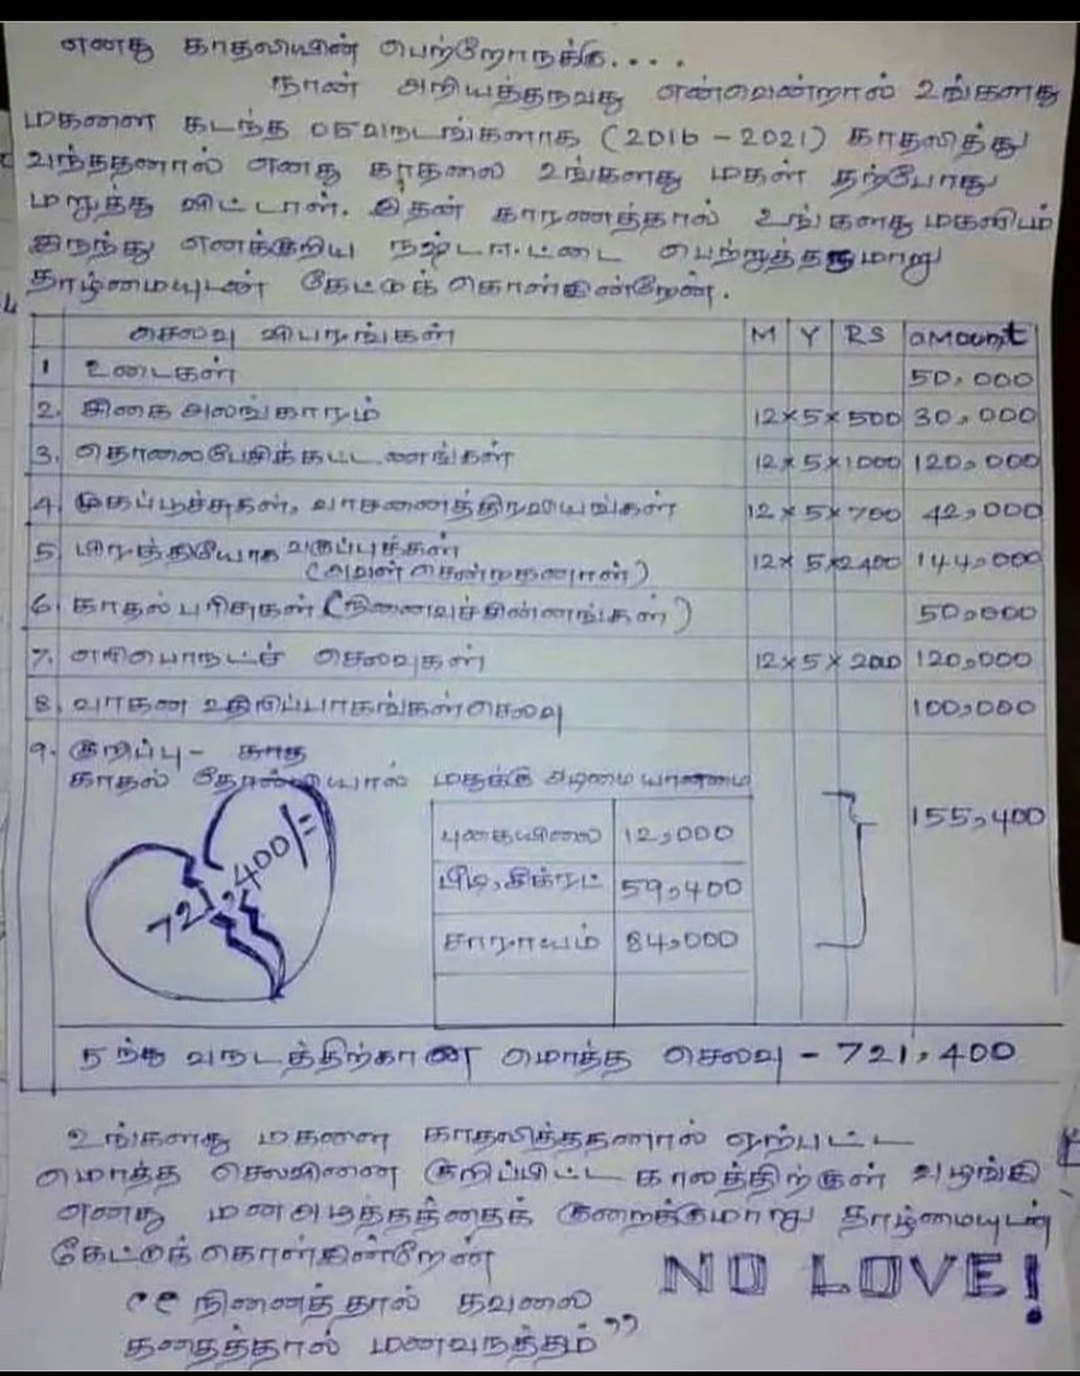 எனது காதலியின் பெற்றோருக்கு....
நான் அறியத்தருவது என்வென்றால் உங்களது
மகளை கடந்த 05வருடங்களாக (2016 - 2021) காதலித்து
வந்ததனால் எனது காதலை உங்களது மகள் தற்போது
மறுத்து விட்டாள். இதன் காரணத்தால் உங்களது மகளிடம்
இருந்து எனக்குறிய நஷ்டஈட்டை பெற்றுத்தருமாறு
தாழ்மையுடன் கேட்டுக் கொள்கின்றேன்.
செலவு விபரங்கள் M Y RS amount
1 உடைகள் 50,000
2. சிகை அலங்காரம் 12 × 5 × 500 30,000
3. தொலைபேசிக்கட்டணங்கள் 12 × 5 × 1000 120,000
4. முகப்பூச்சுகள், வாசனைத்திரவியங்கள் 12 × 5 × 700 42,000
5 பிரத்தியேக வகுப்புக்கள் 12 × 5 × 2400 144,000
(அவள் சென்றதனால்)
6. காதல் பரிசுகள் (நினைவுச்சின்னங்கள்) 50,000
7. எரிபொருட்ச் செலவுகள் 12 × 5 × 2000 120,000
8. வாகன உதிரிப்பாகங்கள் செலவு 100,000
9. குறிப்பு -
காதல் தோல்வியால் மதுக்கு அடிமையானமை
155,400
புகையிலை 12,000
பீடி, சிக்ரட் 59,400
சாராயம் 84,000
721,400/=
5 ந்து வருடத்திற்கான மொத்த செலவு - 721,400
உங்களது மகளை காதலித்ததனால் ஏற்பட்ட
மொத்த செலவினை குறிப்பிட்ட காலத்திற்குள் வழங்கி
எனது மனஅழுத்தத்தைக் குறைக்குமாறு தாழ்மையுடன்
கேட்டுக் கொள்கின்றேன்
NO LOVE!
"நினைத்தால் கவலை
கதைத்தால் மனவருத்தம்"